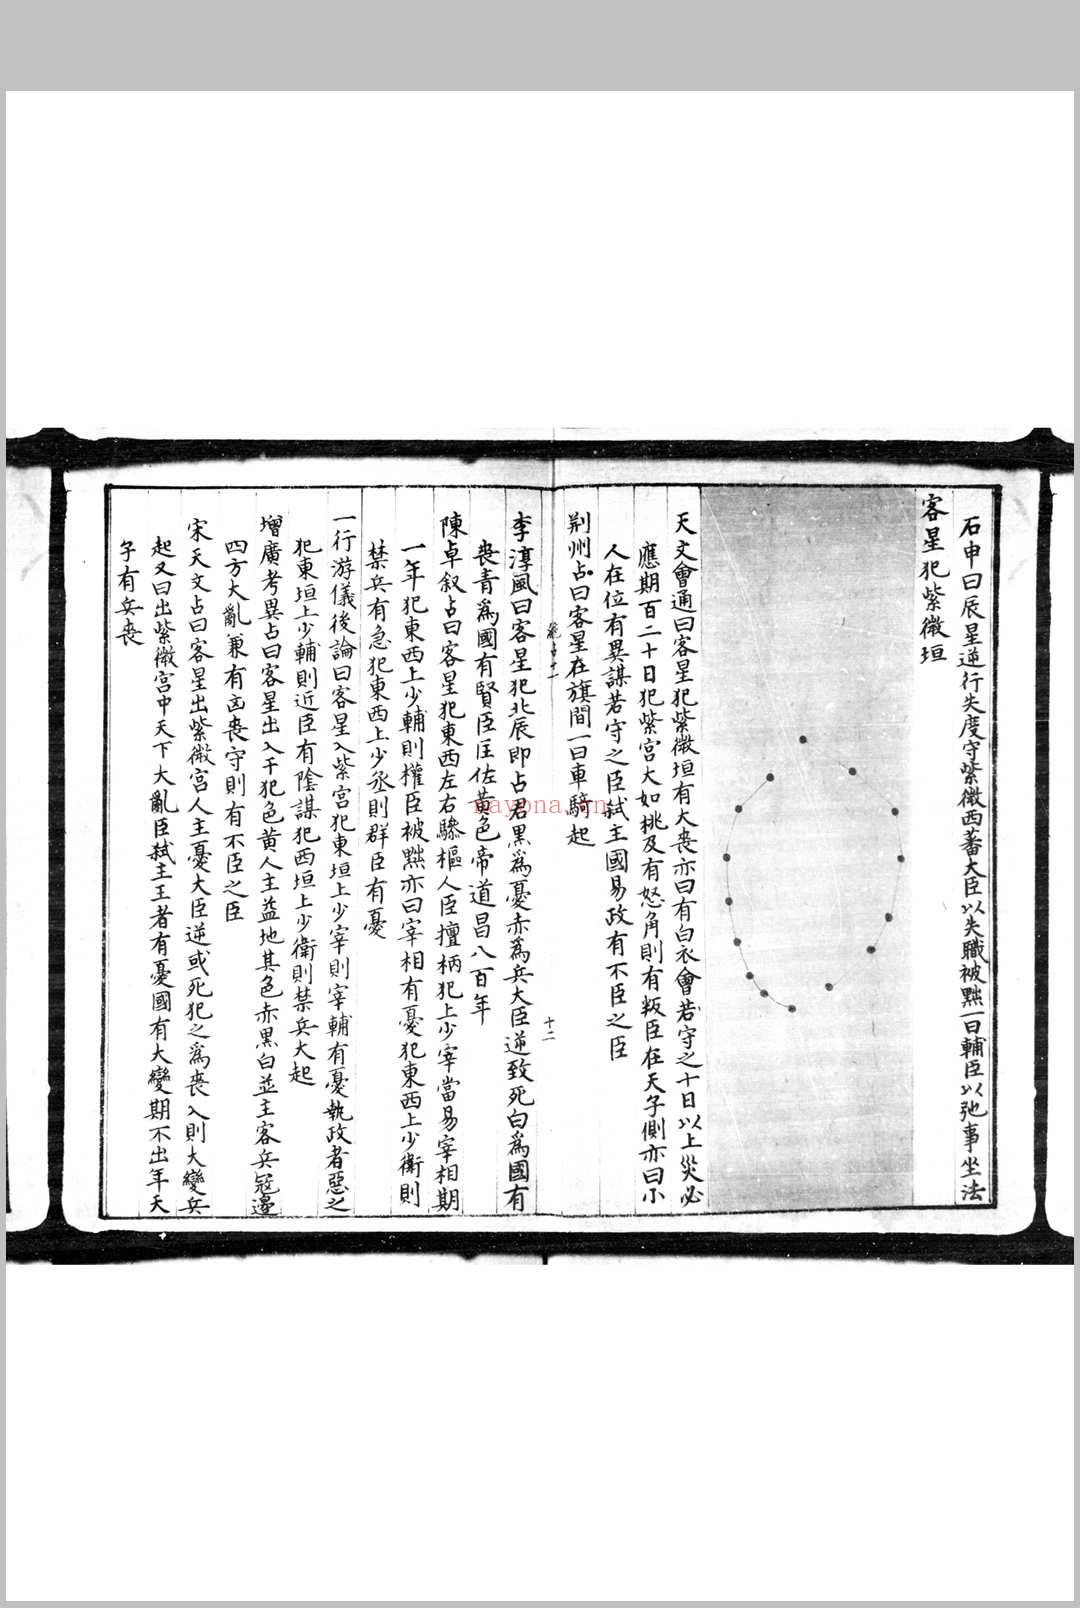 石申曰辰星逆行失度守紫微西蕃大臣以失職被黜一曰輔臣以弛事坐法
客星犯紫微垣
天文會通曰客星犯紫微垣有大喪亦曰有白衣會若守之十日以上災必
應期百二十日犯紫宮大如桃及有怒角則有叛臣在天子側亦曰小
人在位有異謀若守之臣弑主國易政有不臣之臣
荆州占曰客星在旗間一曰車騎起
十二
李淳風曰客星犯北辰即占君黑爲憂赤爲兵大臣逆致死白爲國有
喪青爲國有賢臣匡佐黃色帝道昌八百年
陳卓叙占曰客星犯東西左右驂樞人臣擅柄犯上少宰當易宰相期
一年犯東西上少輔則權臣被黜亦曰宰相有憂犯東西上少衛則
禁兵有急犯東西上少丞則群臣有憂
一行游儀後論曰客星入紫宮犯東垣上少宰則宰輔有憂執政者惡之
犯東垣上少輔則近臣有陰謀犯西垣上少衛則禁兵大起
增廣考異占曰客星出入干犯色黄人主益地其色赤黑白並主客兵冦邊
四方大亂兼有凶喪守則有不臣之臣
宋天文占曰客星出紫微宮人主憂大臣逆或死犯之爲喪入則大變兵
起又曰出紫微宮中天下大亂臣弑主王者有憂國有大變期不出年天
子有兵喪
nayona.cn